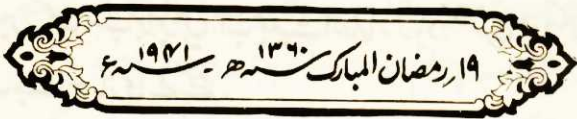 ۱۹؍رمضان المبارک ۱۳۶۰ھ ۔ ۱۹۴۱ء